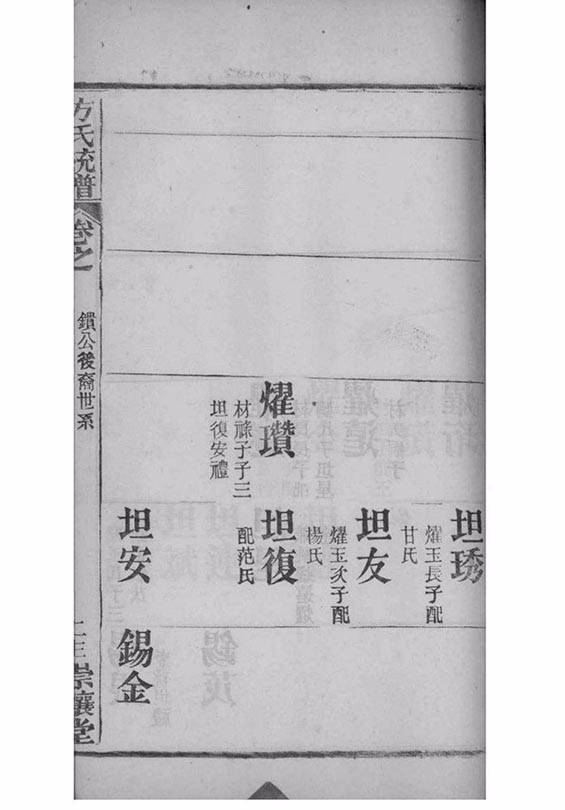 坦琇
燿玉長子配
甘氏
坦友
燿玉次子配
楊氏
燿瓚
材祿子子三
坦復安禮
坦復
配范氏
坦安
錫金
方氏統譜
卷之一
鐀公後裔世系
崇讓堂